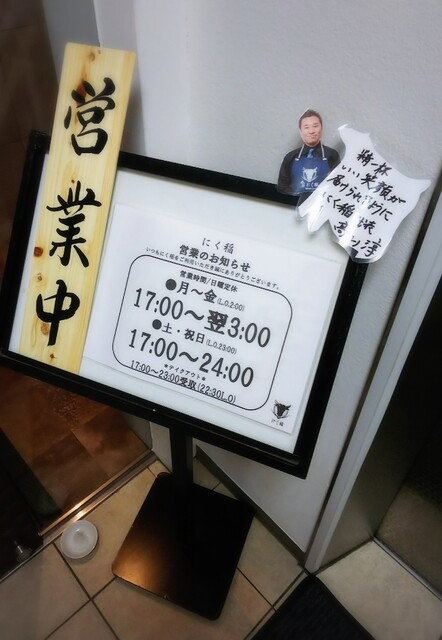 営業中
にく稲
営業のお知らせ
いつもにく稲をご利用いただき誠にありがとうございます。
営業時間/日曜定休
●月～金(L.O.2:00)
17:00～翌3:00
●土・祝日(L.O.23:00)
17:00～24:00
＊テイクアウト＊
17:00～23:00受取(22:30L.O)
にく稲
精一杯
いい笑顔が
届けられるように
にく稲